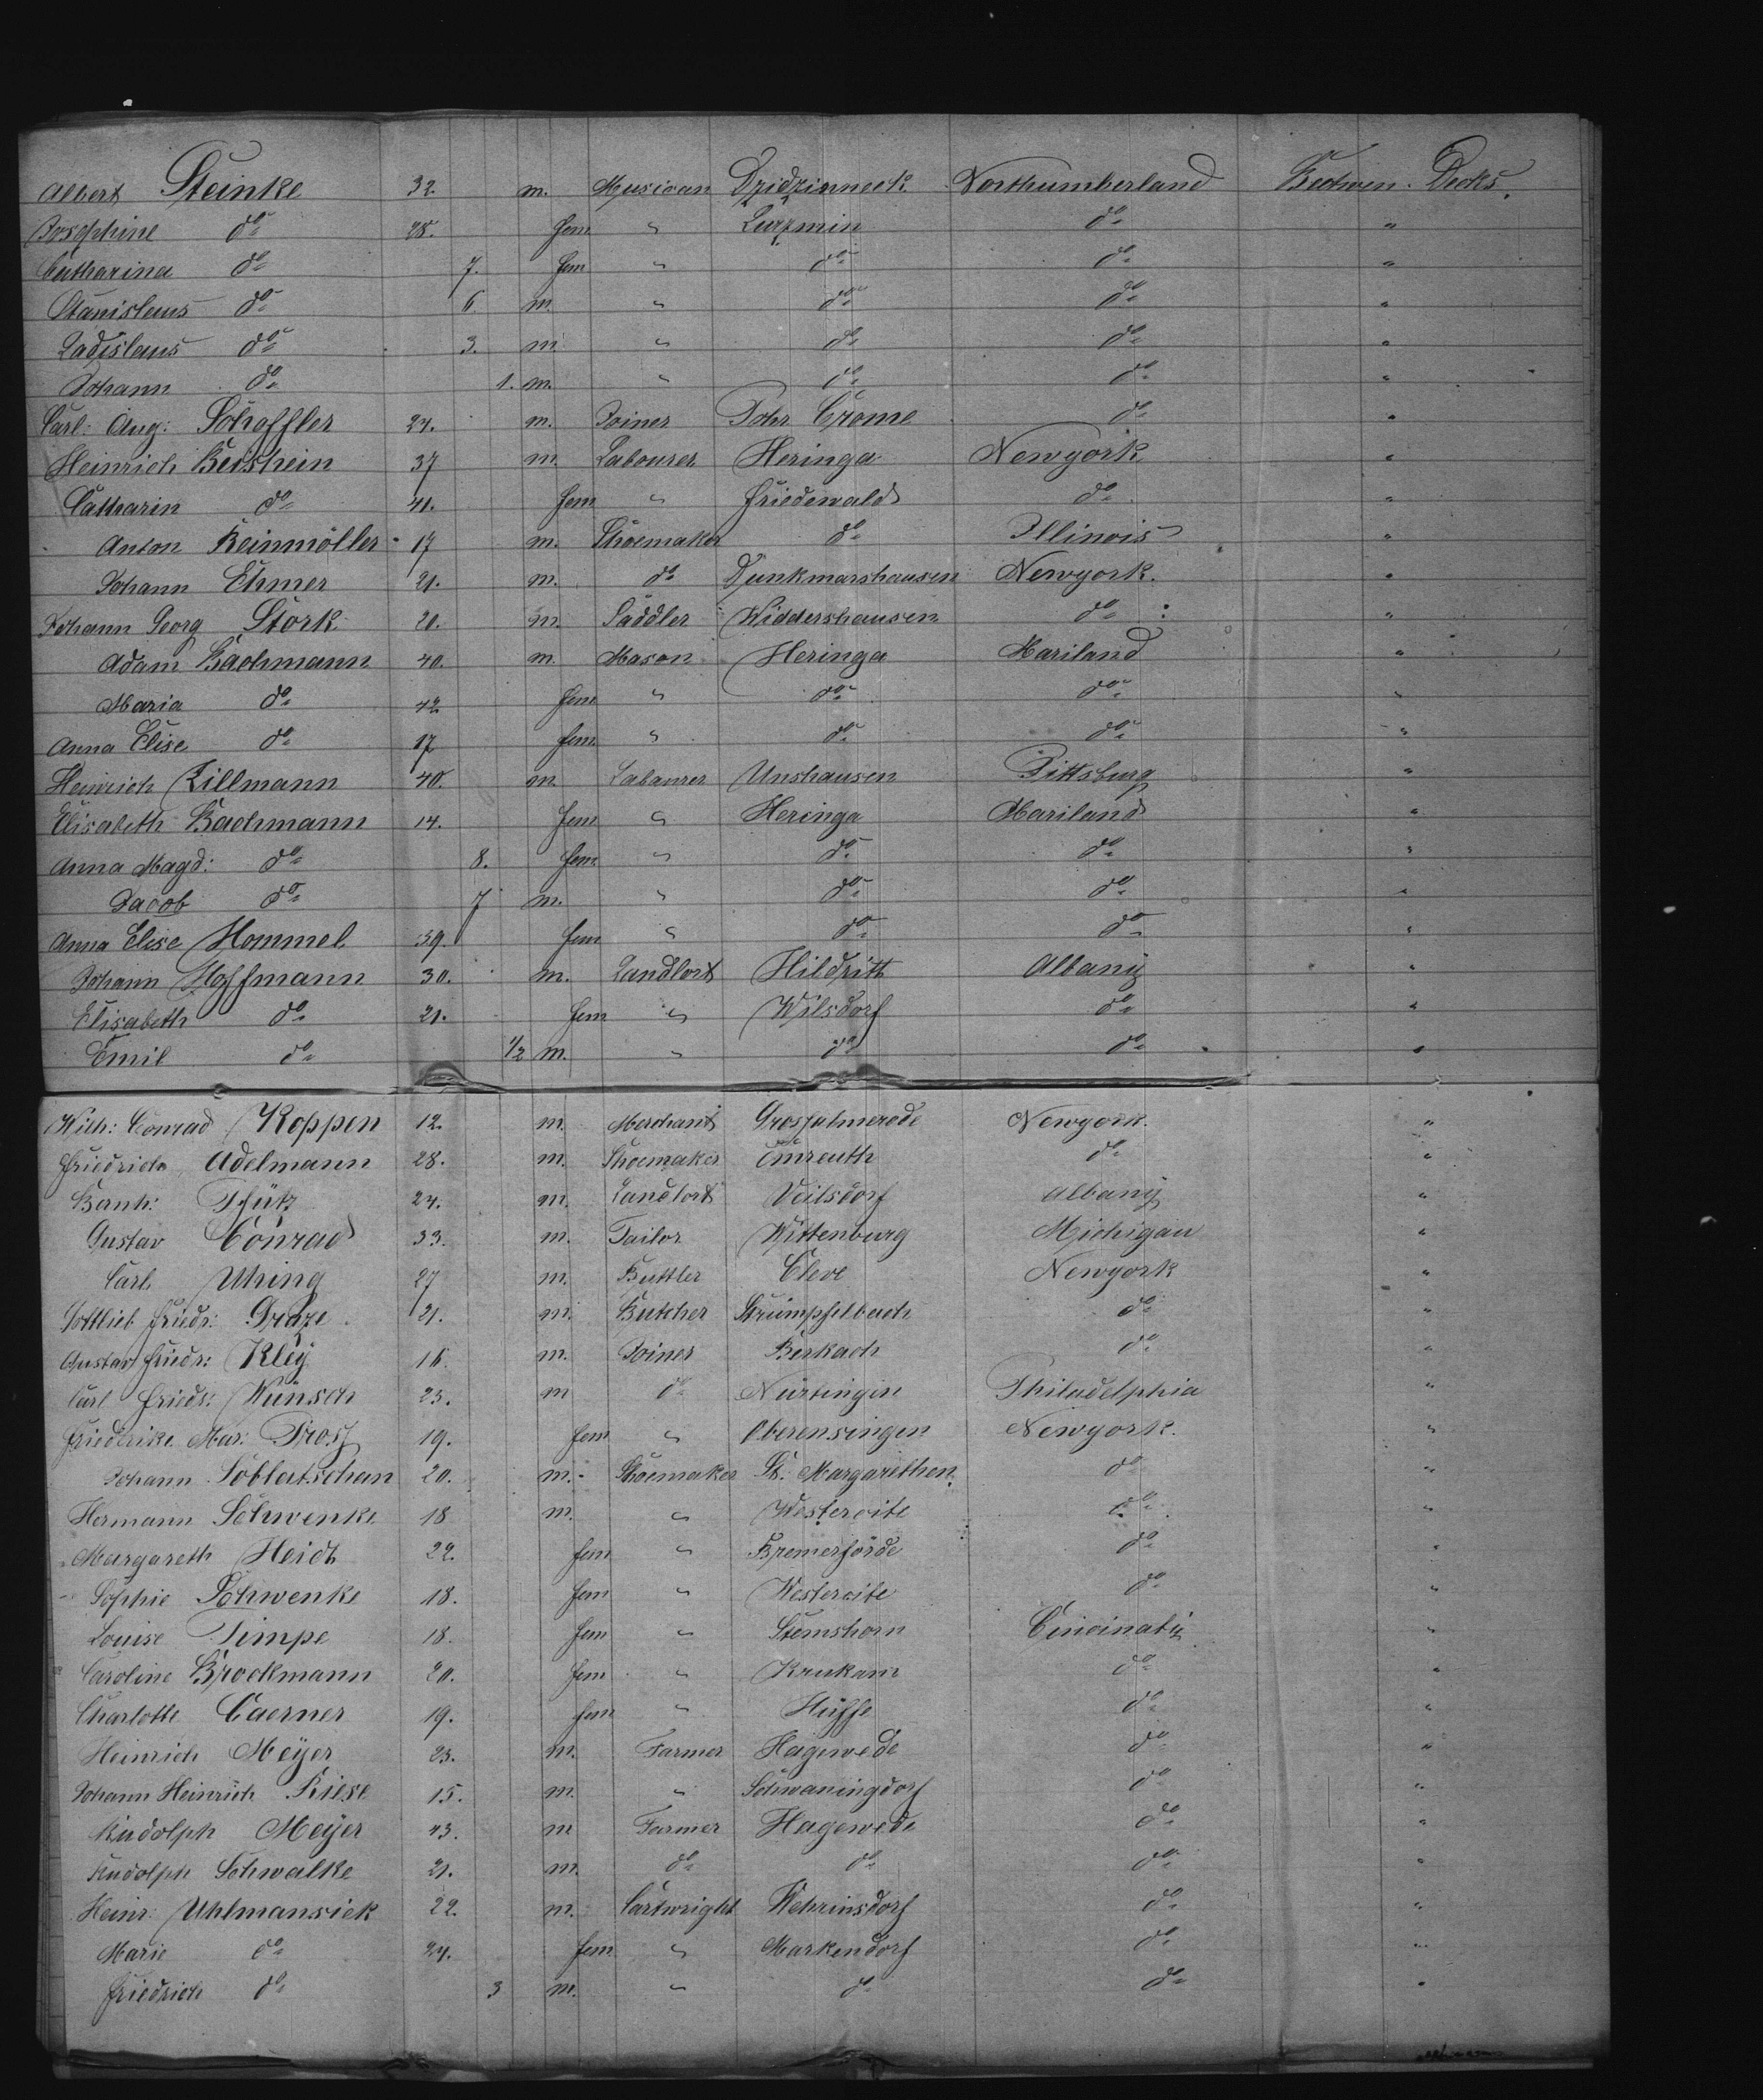 Albert Steinke 32. m. Musican Dzidzinneck Northumberland Bectwen. Decks.
Josephine do 28. fem " Lurzmin do "
Catharina do 7. fem " do do "
Stanislaus do 6 m. " do do "
Ladislaus do 3. m. " do do "
Johann do 1. m. " do do "
Carl: Aug: Schoffler 24. m. Joiner Crome do "
Heinrich Beishein 37 m. Labourer Heringa Newyork "
Catharin do 41. fem " Friedewald do "
Anton Reinmöller 17 m. Shoemaker do Illinois "
Johann Ehmer 21. m. do Dunkmarshausen Newyork. "
Johann Georg Stork 20. m. Saddler Widdershausen do "
Adam Bachmann 40. m. Mason Heringa Mariland "
Maria do 42 fem " do do "
Anna Elise do 17 fem. " do do "
Heinrich Zillmann 40. m. Labaurer Unshausen Pittsburg "
Elisabeth Bachmann 14. fem " Heringa Mariland "
Anna Magd: do 8. fem " do do "
Jacob do 7 m. " do do "
Anna Elise Hommel 39. fem " do do "
Johann Hoffmann 30. m. Landlort Hildritt Albany "
Elisabeth do 21. fem " Wilsdorf do "
Emil do 1/2 m. " do do "
Wilh: Conrad Koppen 12. m. Merchant Groszalmerode Newyork. "
Friedrich Adelmann 28. m. Shoemaker Emreuth do "
Bernh: 24. m. Landlort Veilsdorf Albany "
Gustav Conrad 33. m. Tailor Wittenburg Michigan "
Carl Uhing 27 m. Buttler Cleve Newyork "
Gottlieb Friedr: 21. m. Butcher Strümpfelbach do "
Gustav Friedr: Kley 16. m. Joiner Berkach do "
Carl Friedr: Wünsch 23. m do Nürtingin Philadelphia "
Friederike Mar: 19. fem " Oberensingen Newyork. "
Johann Soblatschan 20. m. Shoemaker St: Margarethen. do "
Hermann Schwenke 18 m. " Westeroite do "
Margareth Heidt 22. fem " Bremerförde do "
Sophie Schwenke 18. fem " Westeroite do "
Louise Timpe 18. fem " Stemshorn Cincinaty "
Caroline Brockmann 20. fem " Krukam do "
Charlotte Caerner 19. fem " Hüffe do "
Heinrich Meyer 23. m. Farmer Hagewede do "
Johann Heinrich Riese 15. m. " Schwaningdorf do "
Rudolph Meyer 43. m Farmer Hagewede do "
Rudolph Schwalke 21. m. do do do "
Heinr: Uhlmansiek 22. m. Cartwright Wehrinsdorf do "
Marie do 24. fem " Markendorf do "
Friedrich do 3 m. " do do "